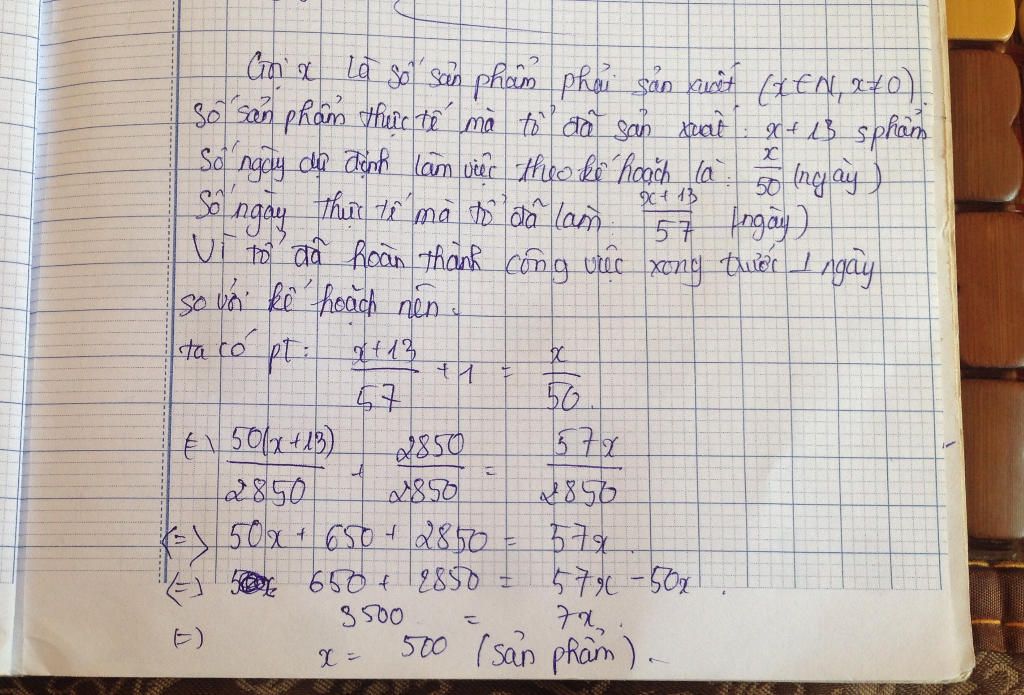 Gọi x là số sản phẩm phải sản xuất (x∈N, x≠0).
Số sản phẩm thực tế mà tổ đã sản xuất: x+13 sphẩm
Số ngày dự định làm việc theo kế hoạch là: x/50 (ngày)
Số ngày thực tế mà tổ đã làm: x+13/57 (ngày)
Vì tổ đã hoàn thành công việc xong trước 1 ngày
so với kế hoạch nên.
ta có pt: x+13/57 + 1 = x/50.
(=) 50(x+13)/2850 + 2850/2850 = 57x/2850
(=) 50x + 650 + 2850 = 57x.
(=) 650 + 2850 = 57x - 50x.
3500 = 7x.
=) x = 500 (sản phẩm).